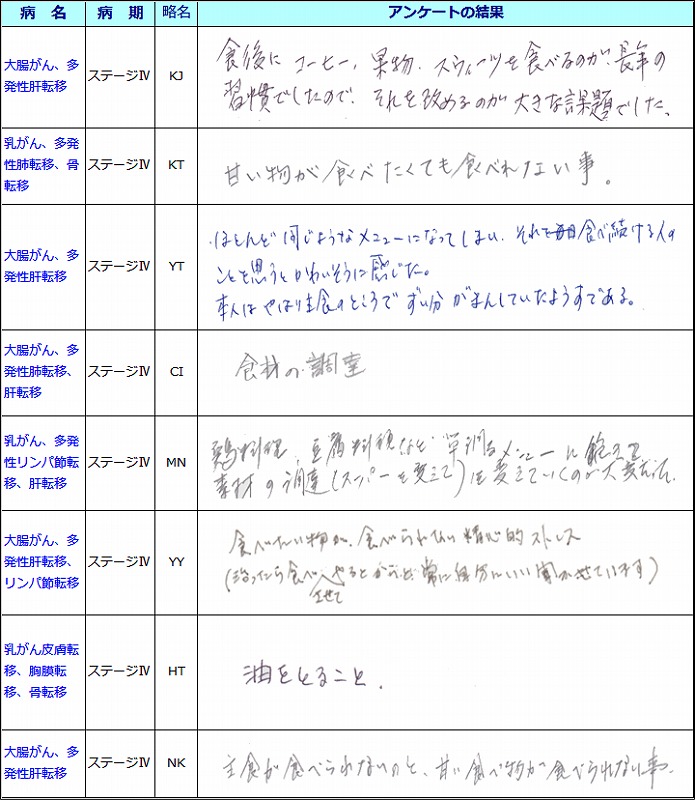 病 名 病 期 略名 アンケートの結果
大腸がん、多
発性肝転移
ステージⅣ
KJ
食後に コーヒー、果物、スウィーツを食べるのが、長年の
習慣でしたので、それを改めるのが大きな課題でした。
乳がん、多発
性肺転移、骨
転移
ステージⅣ
KT
甘い物が食べたくても食べれない事。
大腸がん、多
発性肝転移
ステージⅣ
YT
ほとんど同じようなメニューになってしまい、それを毎日食べ続ける人の
ことを思うとかわいそうに感じた。
本人はやはり主食のところでずい分がまんしていたようすである。
大腸がん、多
発性肺転移、
肝転移
ステージⅣ
CI
食材の調達
乳がん、多発
性リンパ節転
移、肝転移
ステージⅣ
MN
鶏料理、豆腐料理など、単調なメニューに飽きて
素材の調達(スーパーを変えて)を変えていくのが大変だった。
大腸がん、多
発性肝転移、
リンパ節転移
ステージⅣ
YY
食べたい物が、食べられない精神的ストレス
(治ったら食べ させて やるとかなど常に自分にいい聞かせています)
乳がん皮膚転
移、胸膜転
移、骨転移
ステージⅣ
HT
油をとること.
大腸がん、多
発性肝転移
ステージⅣ
NK
主食が食べられないのと、甘い食べ物が食べられない事.